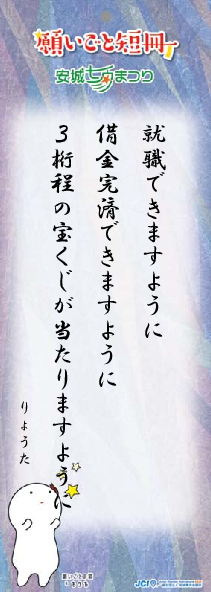 願いごと短冊
安城七夕まつり
就職できますように
借金完済できますように
3桁程の宝くじが当たりますように
りょうた
願いごと短冊
JCI